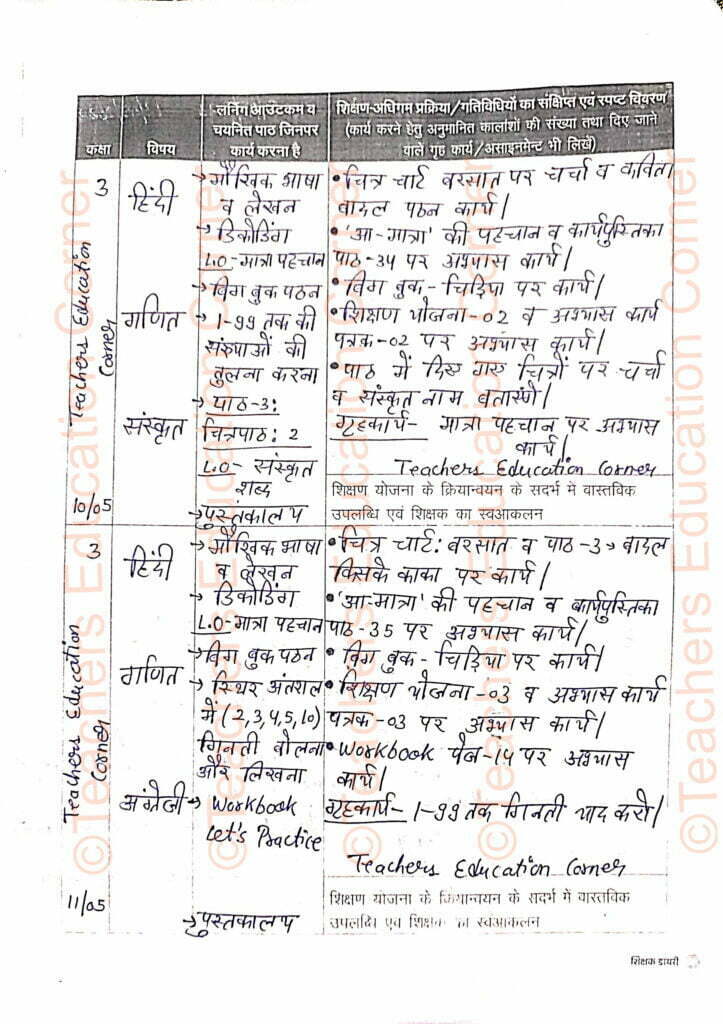 कक्षा
विषय
लर्निंग आउटकम व
चयनित पाठ जिनपर
कार्य करना है
शिक्षण-अधिगम प्रक्रिया/गतिविधियों का संक्षिप्त एवं स्पष्ट विवरण
(कार्य करने हेतु अनुमानित कालांशों की संख्या तथा दिए जाने
वाले गृह कार्य/असाइनमेन्ट भी लिखें)
3
हिंदी
→ मौखिक भाषा
व लेखन
→ डिकोडिंग
L.O-मात्रा पहचान
→ बिग बुक पठन
गणित
→ 1-99 तक की
संख्याओं की
तुलना करना
संस्कृत
→ पाठ-3:
चित्रपाठ: 2
L.O- संस्कृत
शब्द
→ पुस्तकालय
• चित्र चार्ट बरसात पर चर्चा व कविता
बादल पठन कार्य|
• 'आ-मात्रा' की पहचान व कार्यपुस्तिका
पाठ-34 पर अभ्यास कार्य|
• बिग बुक-चिड़िया पर कार्य|
• शिक्षण योजना-02 व अभ्यास कार्य
पत्रक-02 पर अभ्यास कार्य|
• पाठ में दिए गए चित्रों पर चर्चा
व संस्कृत नाम बताएंगे|
गृहकार्य- मात्रा पहचान पर अभ्यास
कार्य|
Teachers Education Corner
शिक्षण योजना के क्रियान्वयन के सदर्भ में वास्तविक
उपलब्धि एवं शिक्षक का स्वआकलन
Teachers Education
Corner
10/05
3
हिंदी
→ मौखिक भाषा
व लेखन
→ डिकोडिंग
L.O-मात्रा पहचान
→ बिग बुक पठन
गणित
→ स्थिर अंतराल
में (2,3,4,5,10)
गिनती बोलना
और लिखना
अंग्रेजी
→ Workbook
Let's Practice
→ पुस्तकालय
• चित्र चार्ट: बरसात व पाठ-3→ बादल
किसके काका पर कार्य|
• 'आ-मात्रा' की पहचान व कार्यपुस्तिका
पाठ-35 पर अभ्यास कार्य|
• बिग बुक-चिड़िया पर कार्य|
• शिक्षण योजना-03 व अभ्यास कार्य
पत्रक-03 पर अभ्यास कार्य|
• Workbook पेज-14 पर अभ्यास
कार्य|
गृहकार्य- 1-99 तक गिनती याद करो|
Teachers Education Corner
शिक्षण योजना के क्रियान्वयन के सदर्भ में वास्तविक
उपलब्धि एवं शिक्षक का स्वआकलन
Teachers Education
Corner
11/05
शिक्षक डायरी
©Teachers Education Corner
©Teachers Education Corner
©Teachers Education Corner
©Teachers Education Corner